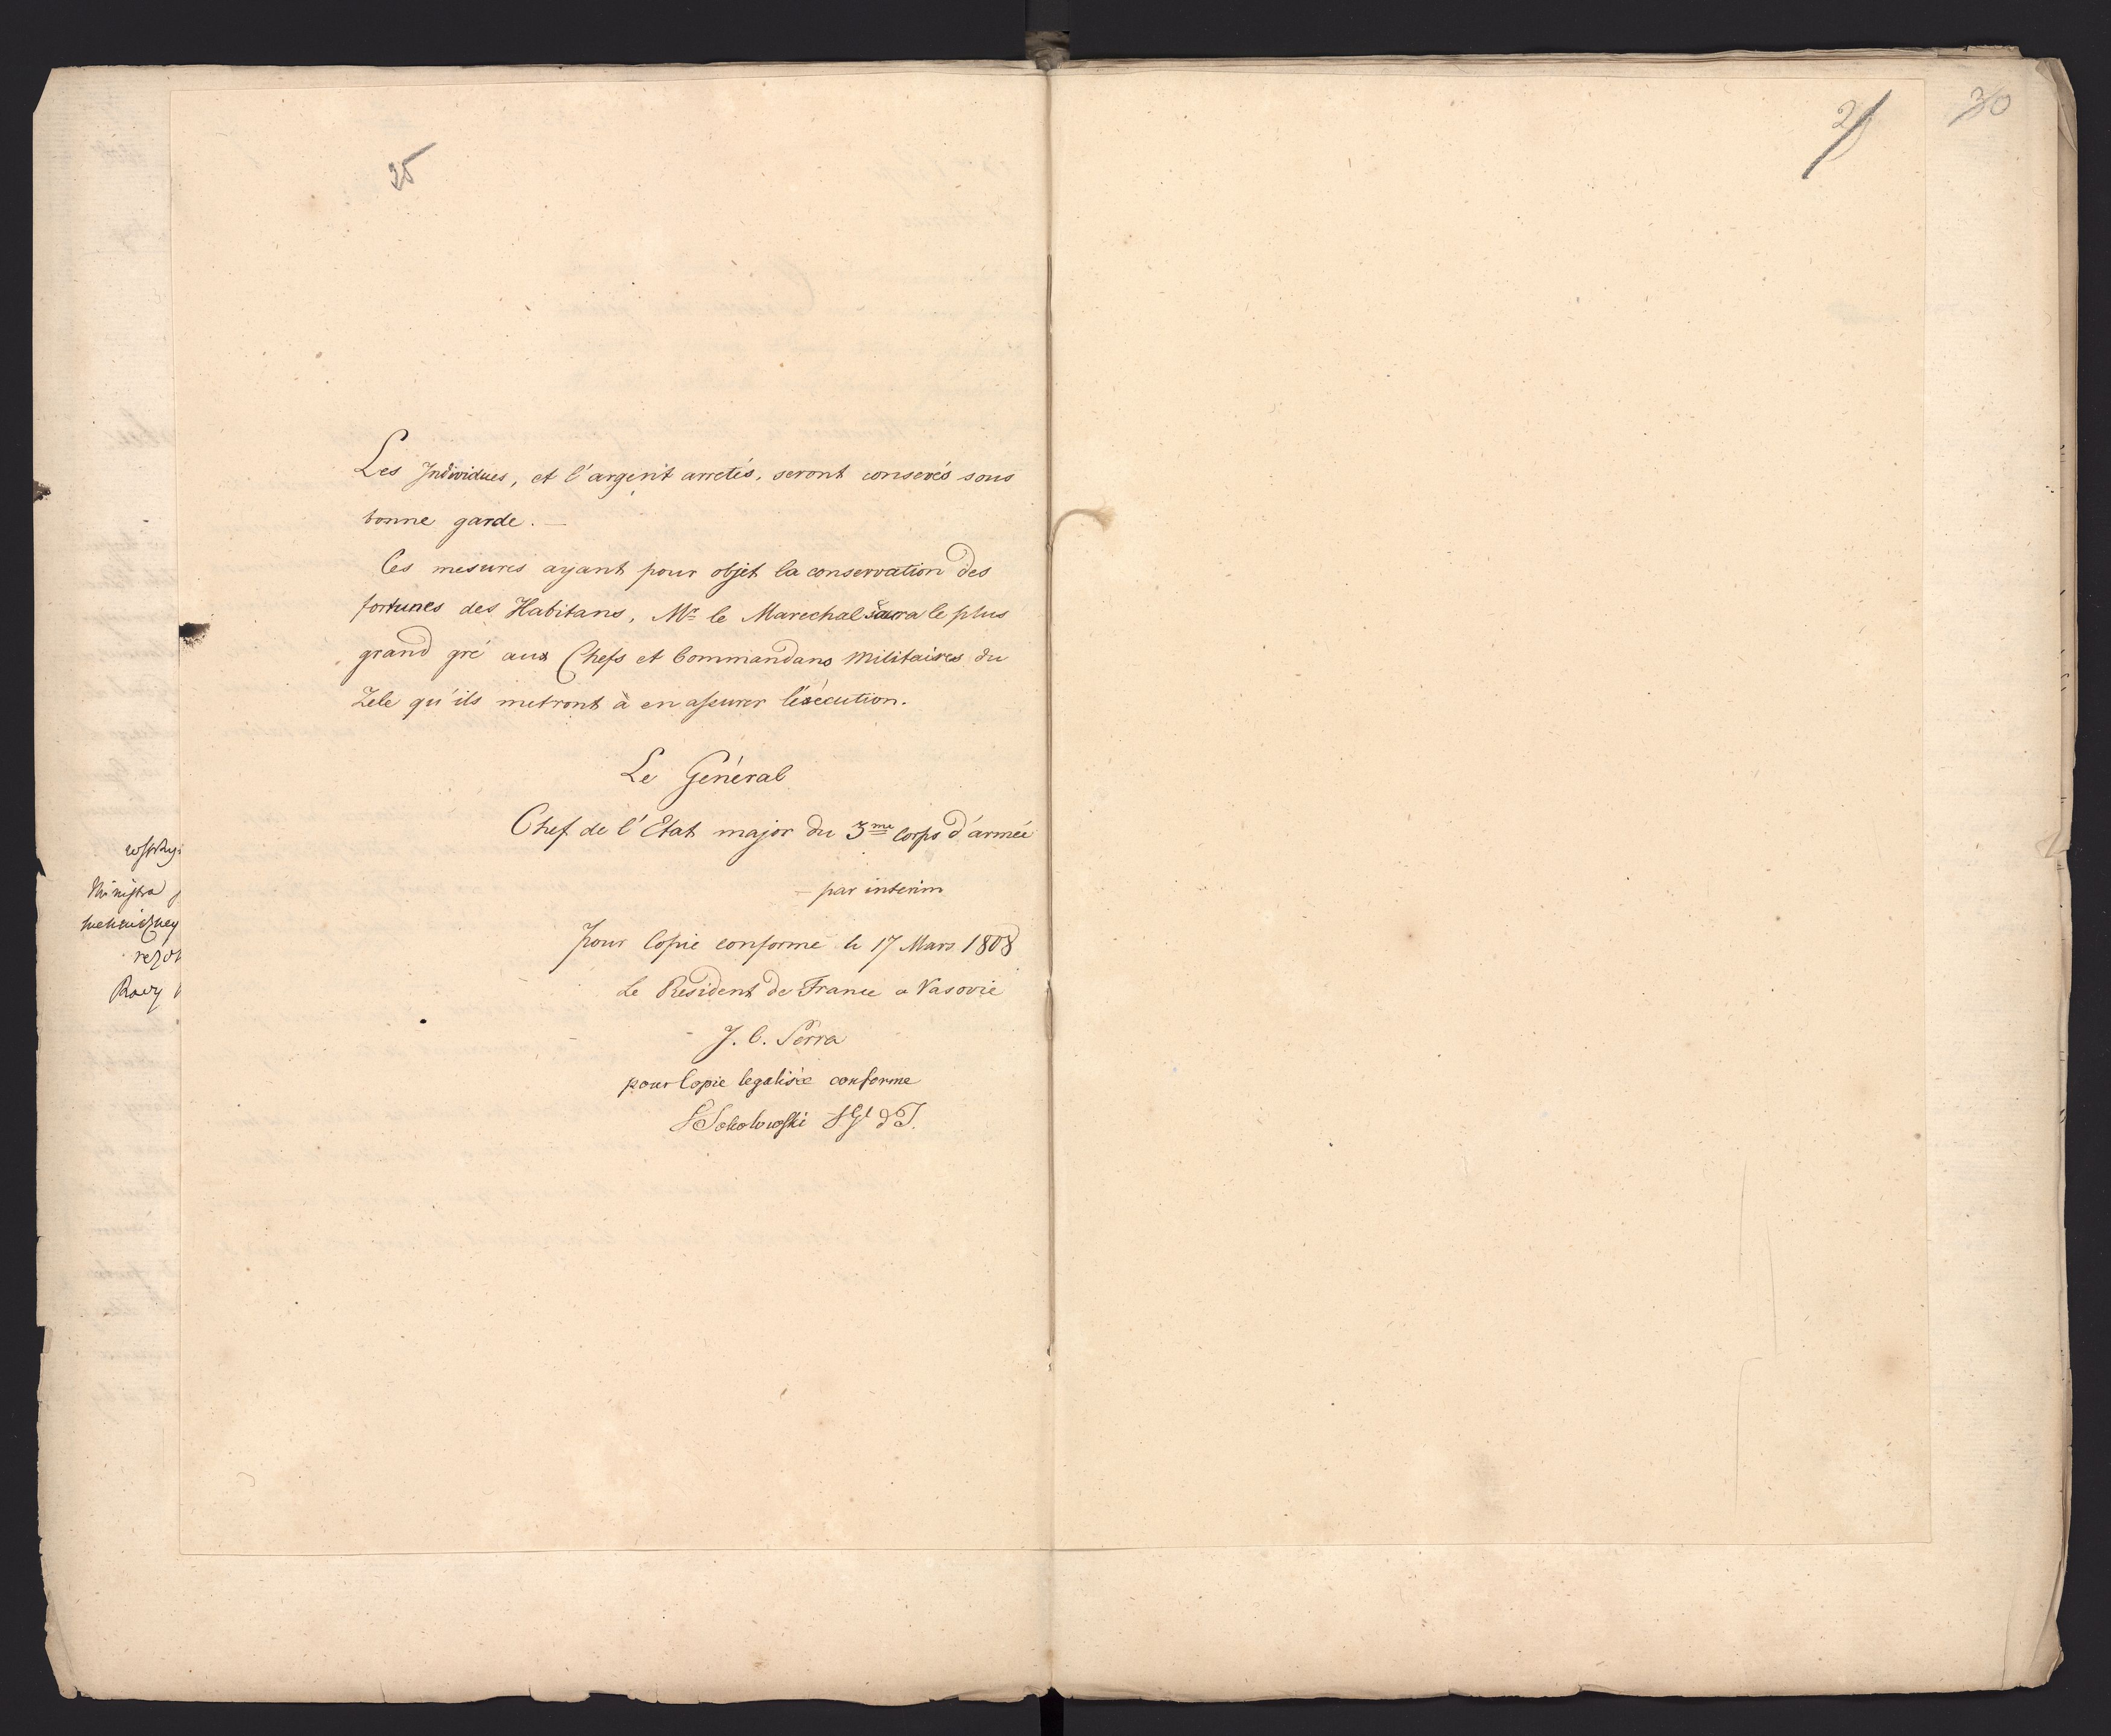 25
Les Individues, et l'argent arretés, seront conservés sous
bonne garde. —
Ces mesures ayant pour objet la conservation des
fortunes des Habitans, Mr le Marechal saura le plus
grand gré aux Chefs et Commandans Militaires du
Zele qu'ils metront à en assurer l'exécution.
Le Géneral
Chef de l'Etat major du 3me Corps d'armée
par interim
Pour Copie conforme le 17 Mars 1808
Le Résident de France a Vasovie
J. C. Serra
pour Copie legalisée conforme
Sokolowski
Ministra
30